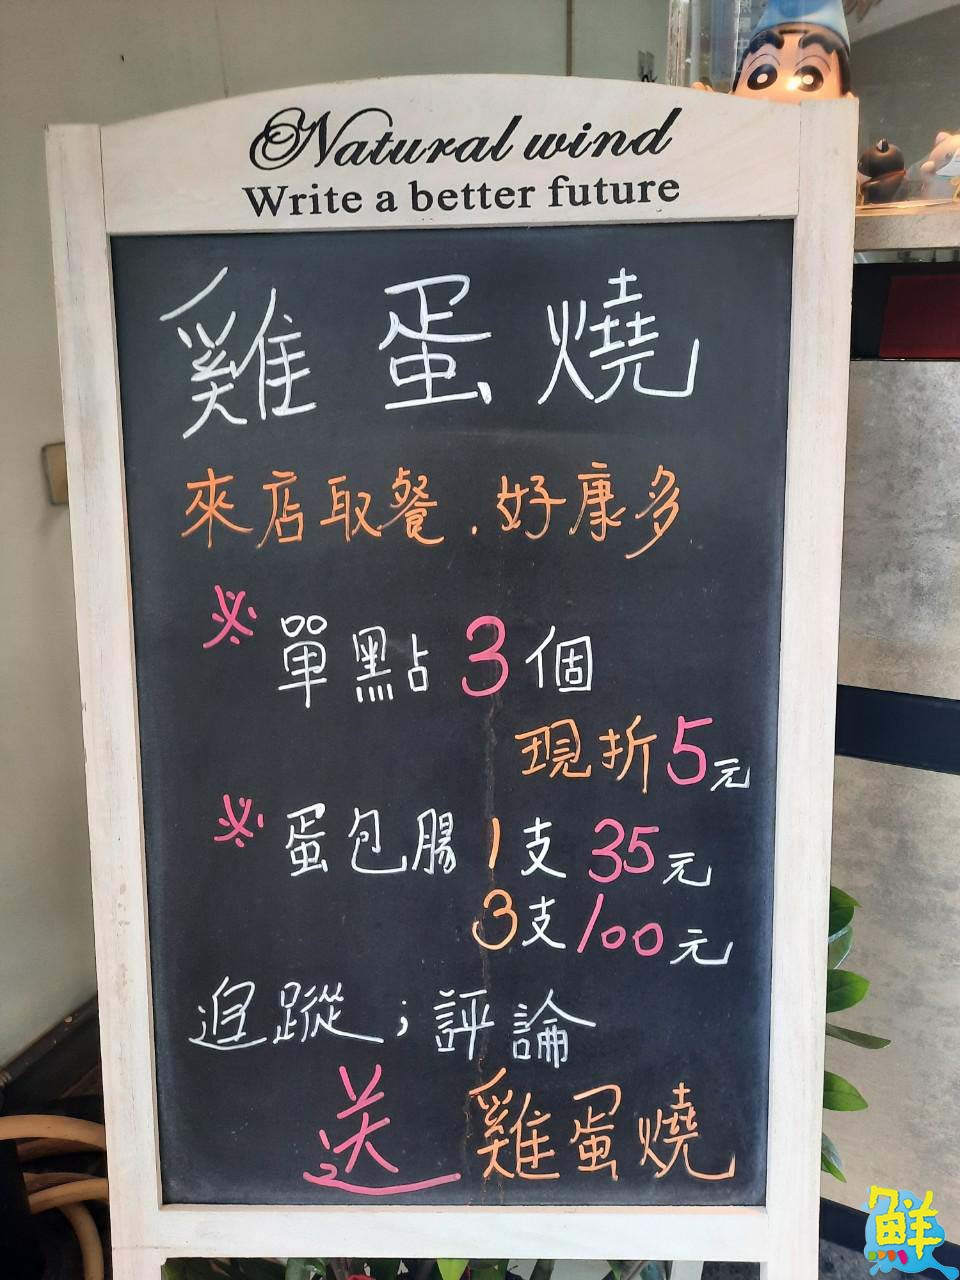 Natural wind
Write a better future
雞蛋燒
來店取餐．好康多
※ 單點3個
現折5元
※ 蛋包腸1支35元
3支100元
追蹤；評論
送 雞蛋燒
鮮